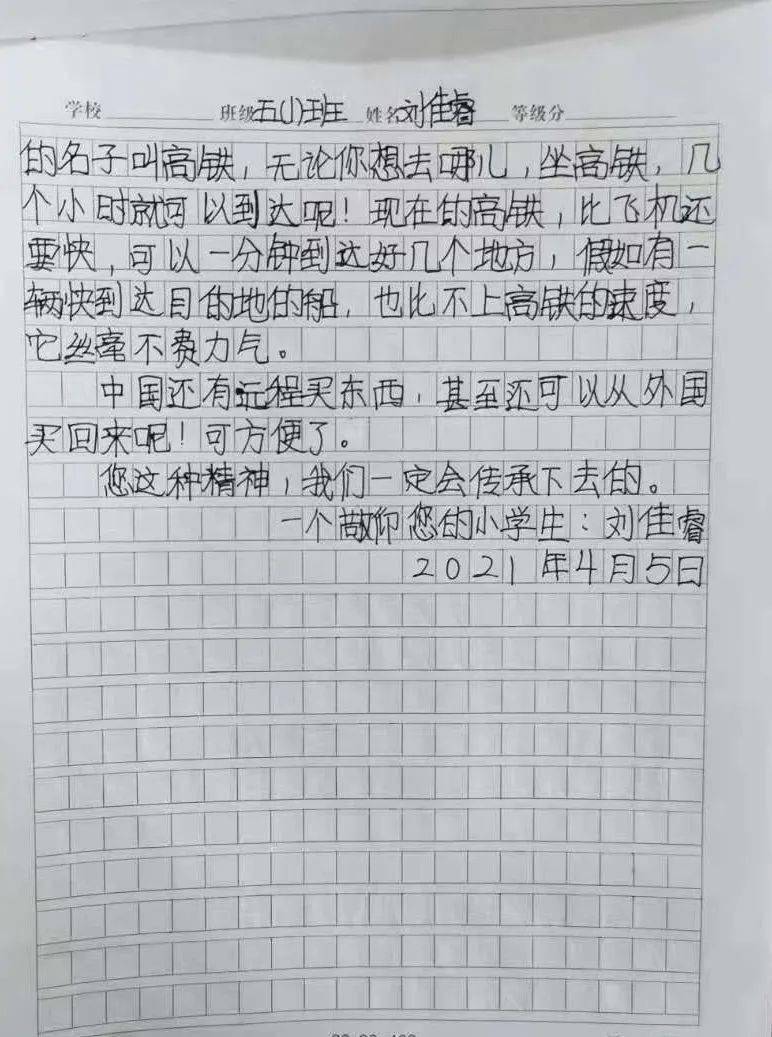 学校 班级五(1)班 姓名刘佳睿 等级分
的名子叫高铁，无论你想去哪儿，坐高铁，几
个小时就可以到达呢！现在的高铁，比飞机还
要快，可以一分钟到达好几个地方，假如有一
辆快到达目的地的船，也比不上高铁的速度，
它丝毫不费力气。
中国还有远程买东西，甚至还可以从外国
买回来呢！可方便了。
您这种精神，我们一定会传承下去的。
一个敬仰您的小学生：刘佳睿
2021年4月5日